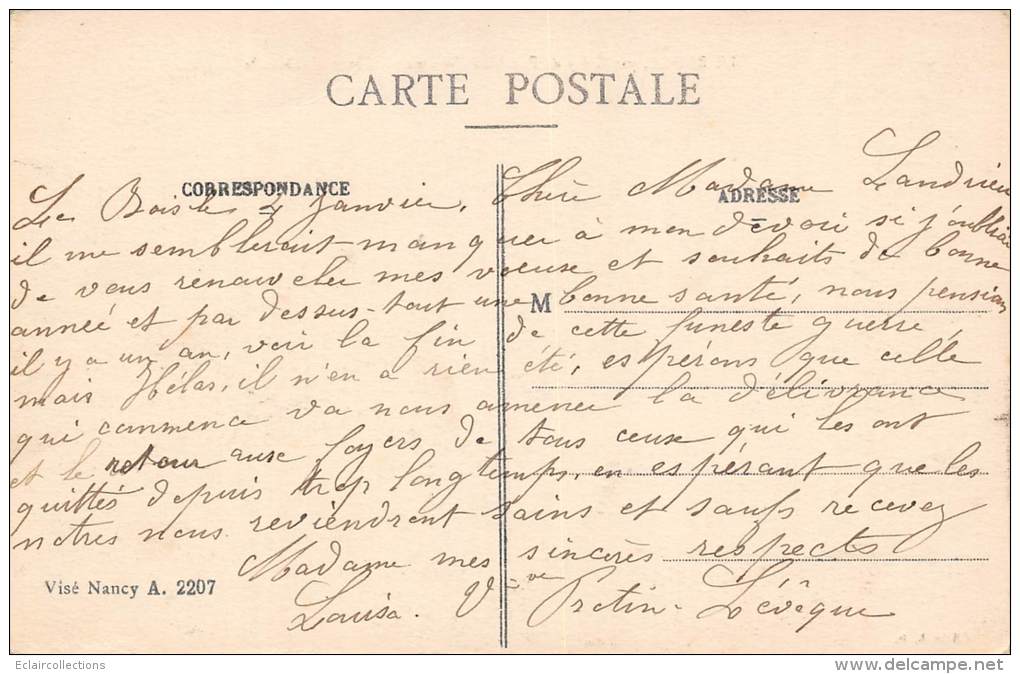 CARTE POSTALE
CORRESPONDANCE
ADRESSE
Le 2 Janvier, Chère Madame Landrieu
il me semblerait manquer à mon devoir si j'oubliai
de vous renouveler mes voeux et souhaits de bonne
année et par dessus-tout une bonne santé, nous pensions
M
il y a un an, voir la fin de cette funeste guerre,
mais Hélas, il n'en a rien été, espérons que celle
qui commence va nous amener la délivrance
et le retour aux foyers de tous ceux qui les ont
quittés depuis trop longtemps, en espérant que les
notres nous reviendront sains et saufs recevez
Madame mes sincères respects
Louisa. Vve Protin-Lévêque
Visé Nancy A. 2207
Eclaircollections
http://www.delcampe.net